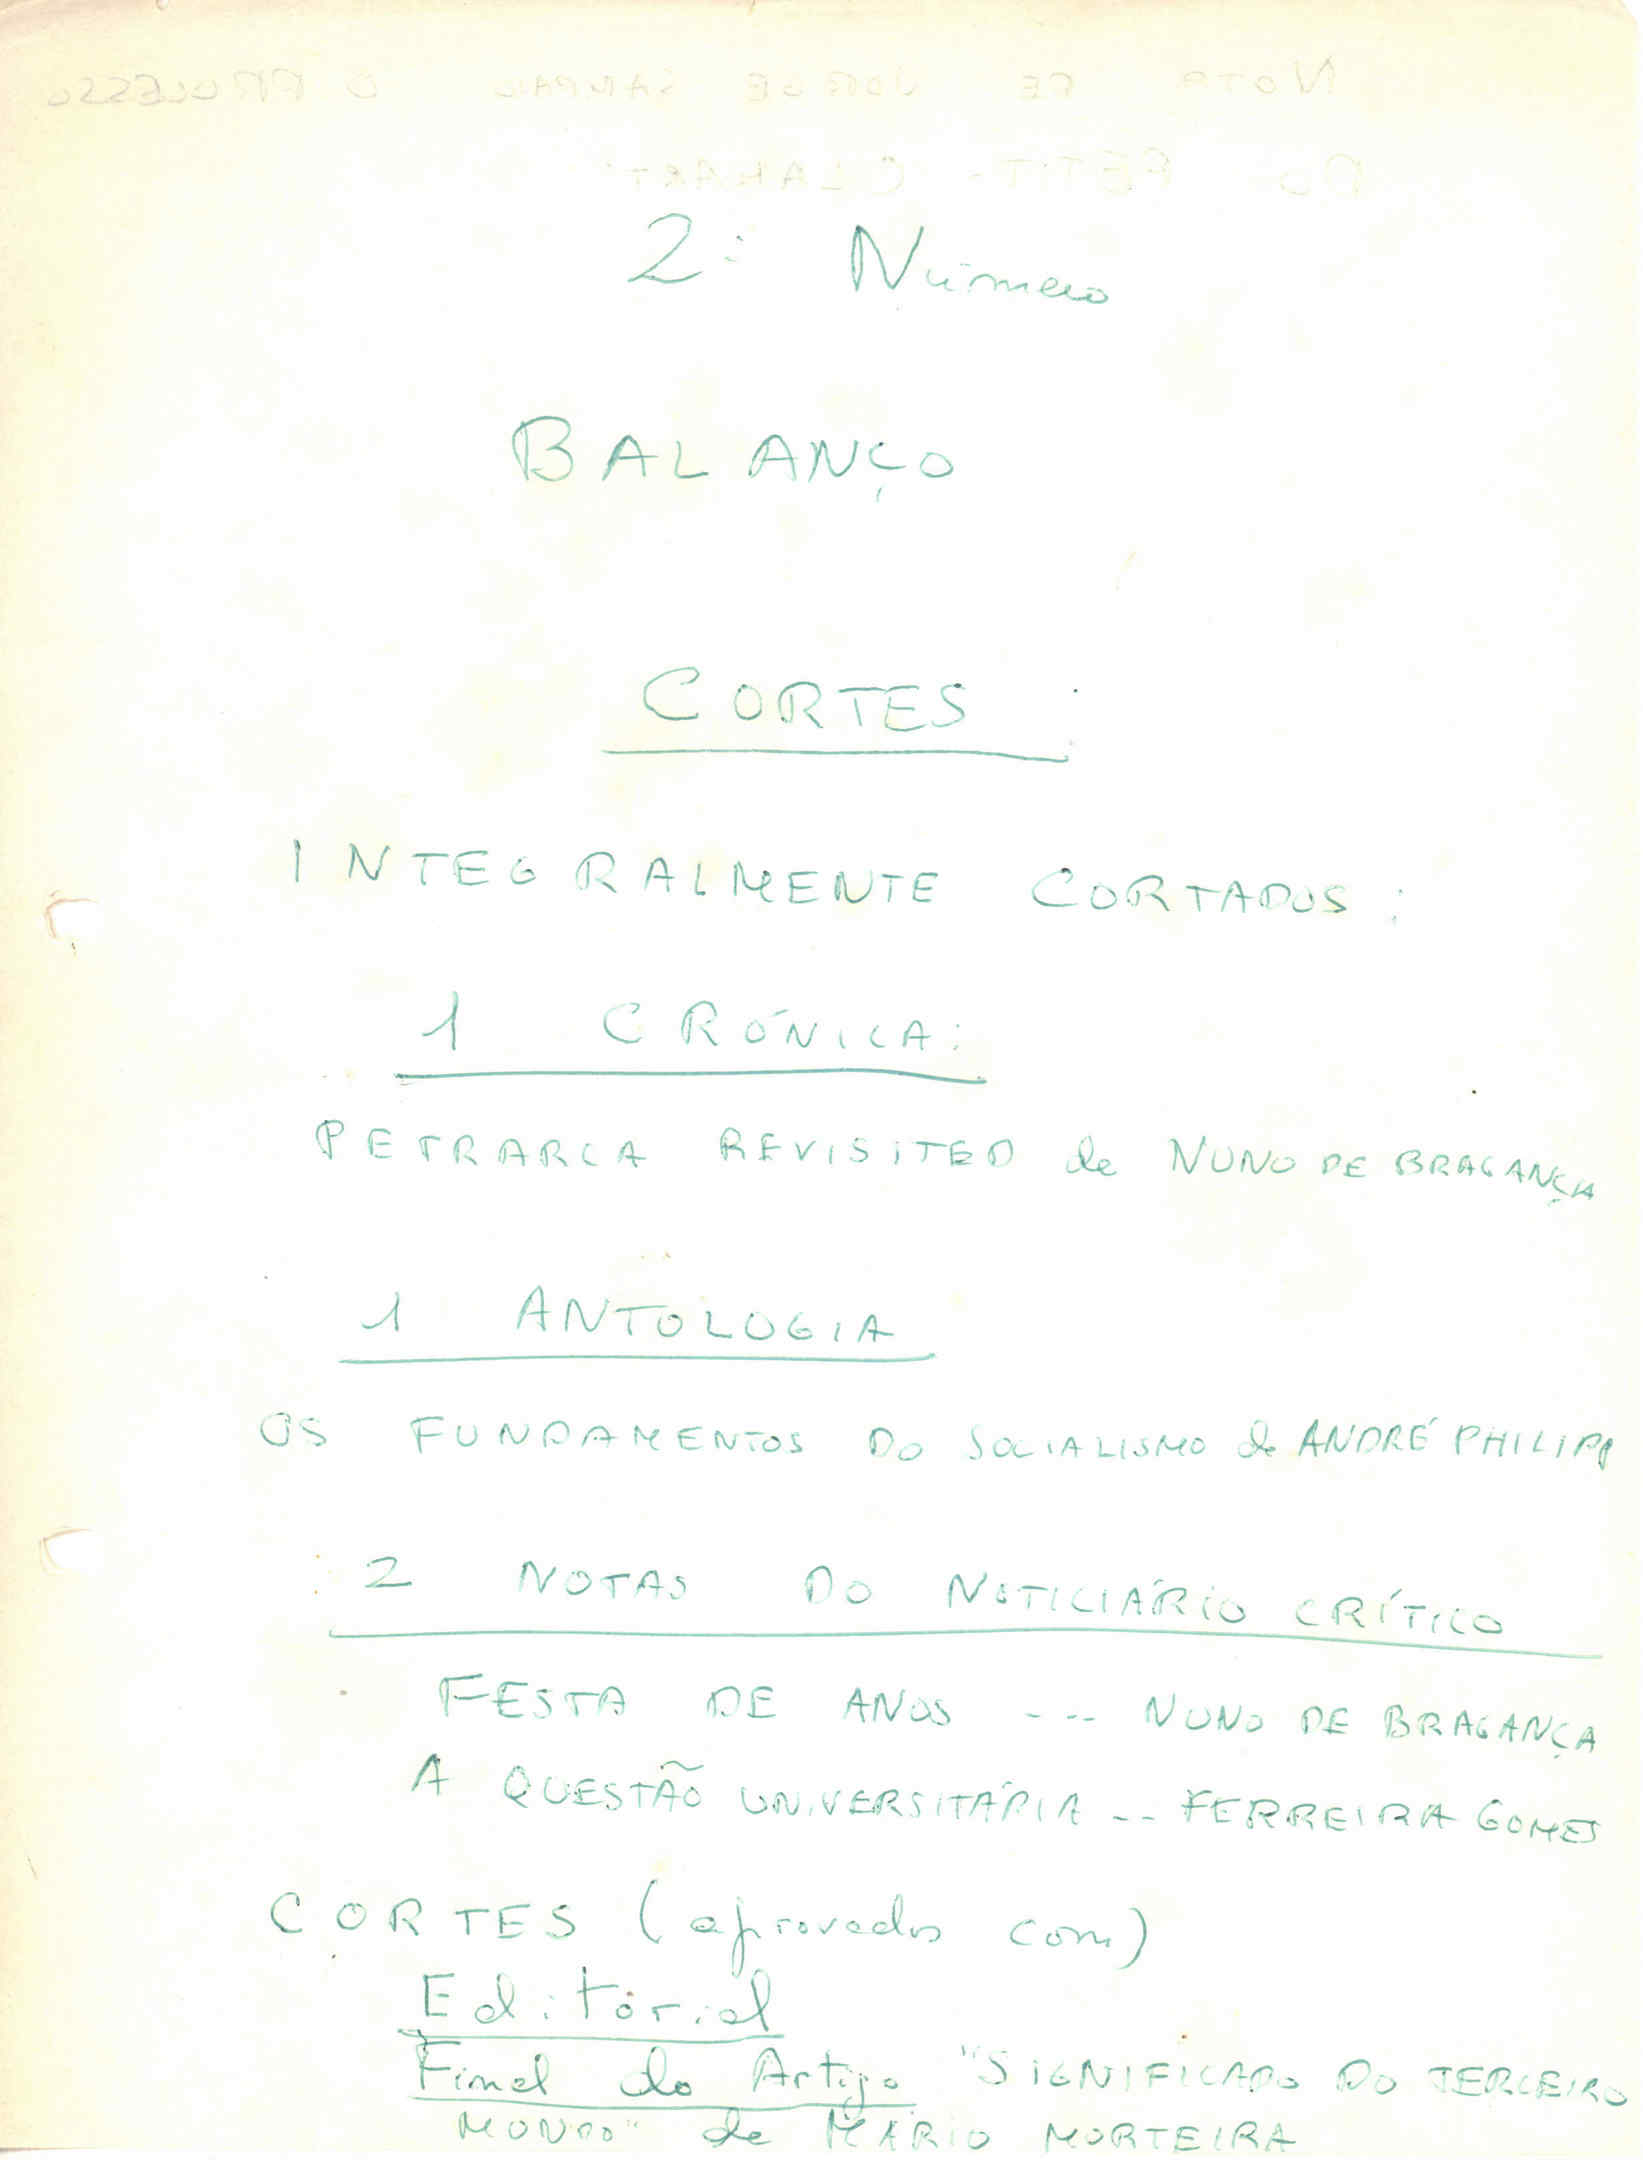 2º Número
BALANÇO
CORTES
INTEGRALMENTE CORTADOS:
1 CRÓNICA:
PETRARCA REVISITED de NUNO DE BRAGANÇA
1 ANTOLOGIA
OS FUNDAMENTOS DO SOCIALISMO de ANDRÉ PHILIPP
2 NOTAS DO NOTICIÁRIO CRÍTICO
FESTA DE ANOS --- NUNO DE BRAGANÇA
A QUESTÃO UNIVERSITÁRIA -- FERREIRA GOMES
CORTES (aprovados com)
Editorial
Final do Artigo "SIGNIFICADO DO TERCEIRO
MUNDO" de MÁRIO MORTEIRA